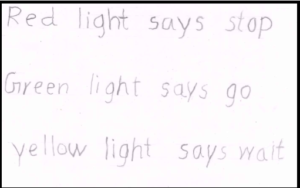 Red light says stop
Green light says go
yellow light says wait